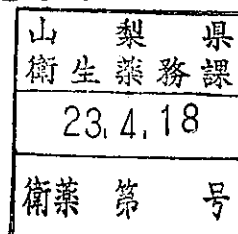 山梨県
衛生薬務課
23.4.18
衛薬第 号